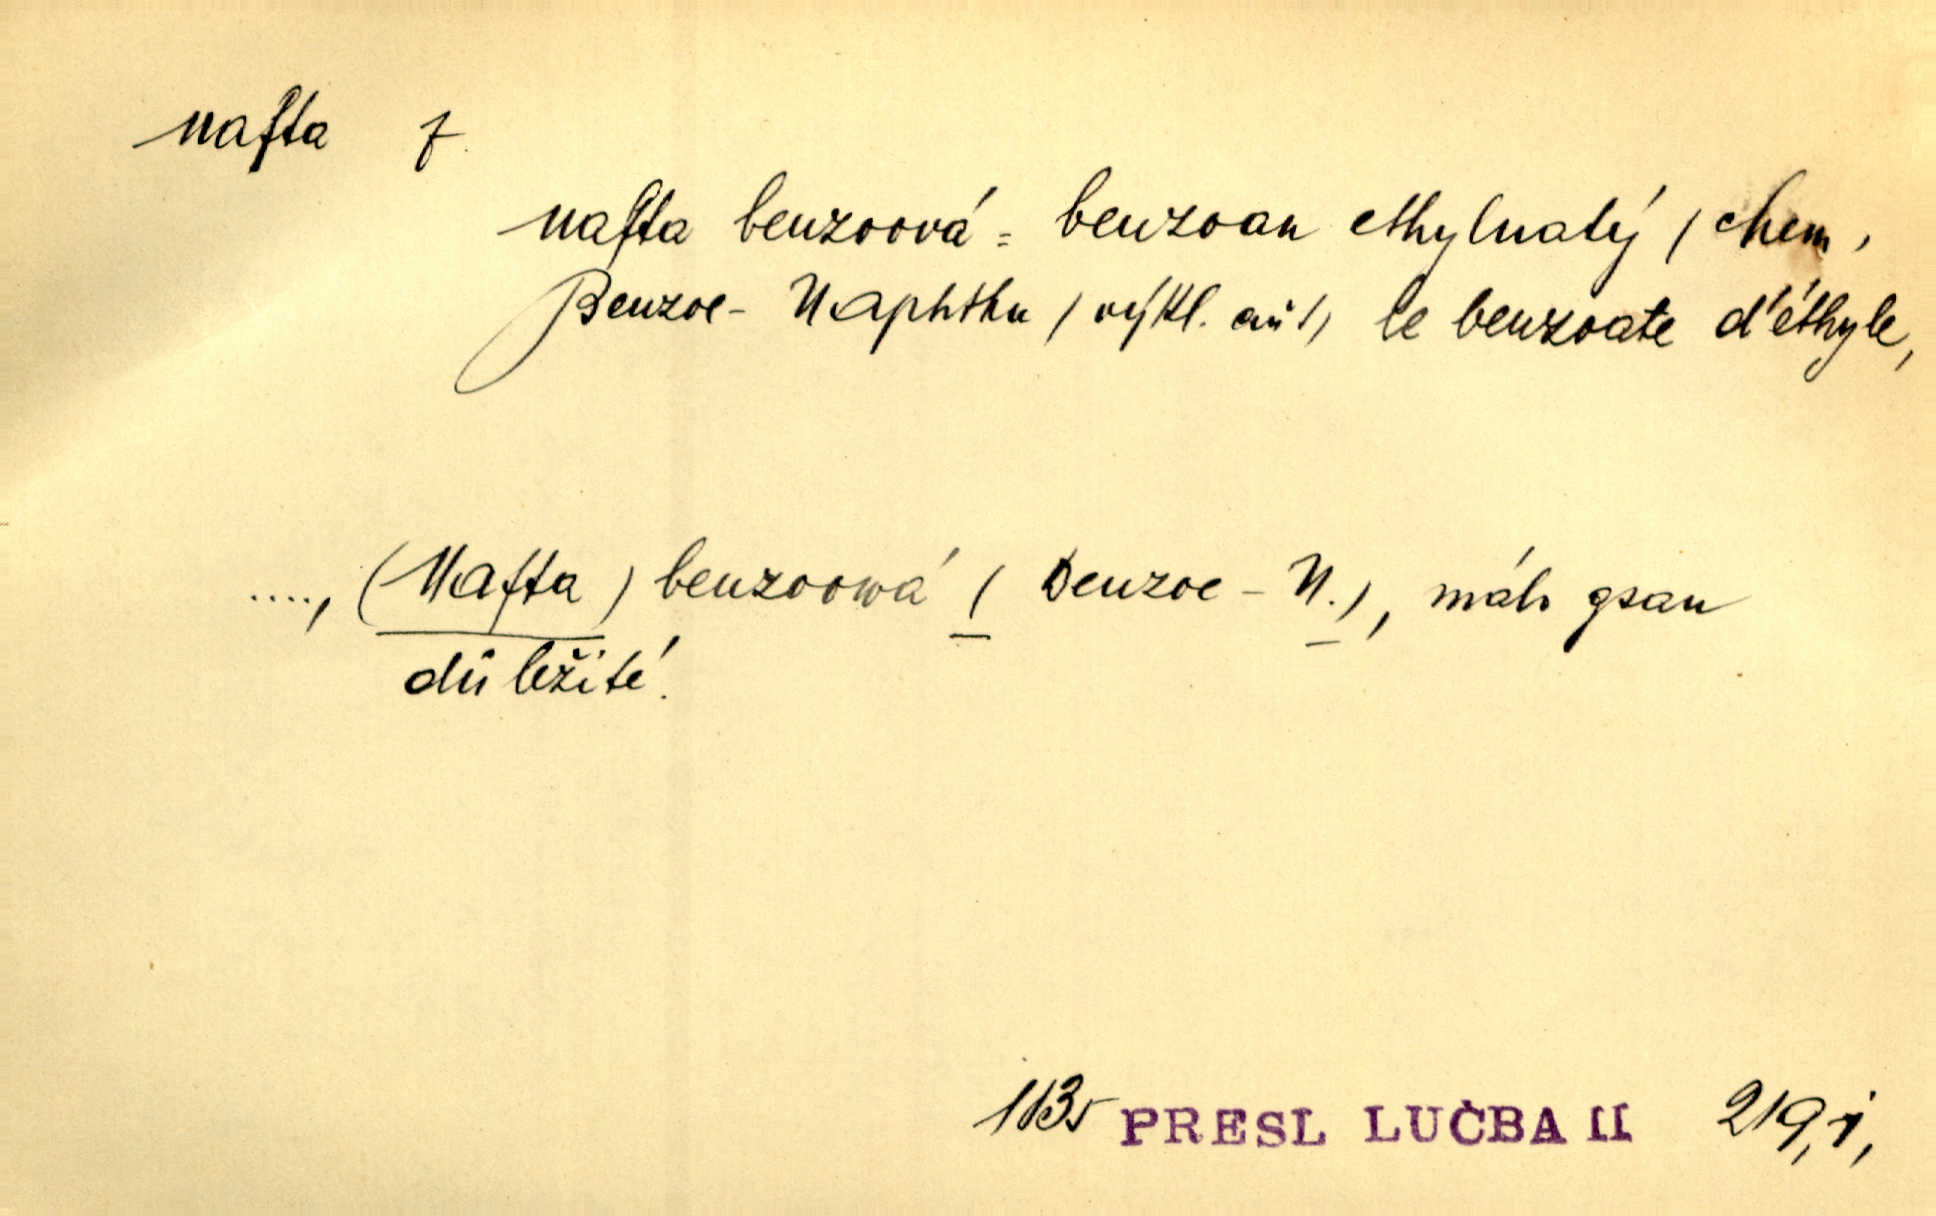 nafta f.
nafta benzoová = benzoan ethylnatý / chem,
Benzoe- Naphtha / výkl. aut/, le benzoate d'éthyle,
...., (Nafta) benzoowá ( Benzoe - N.), máło gsau
důležité.
1835 PRESL LUČBA II 219, i,